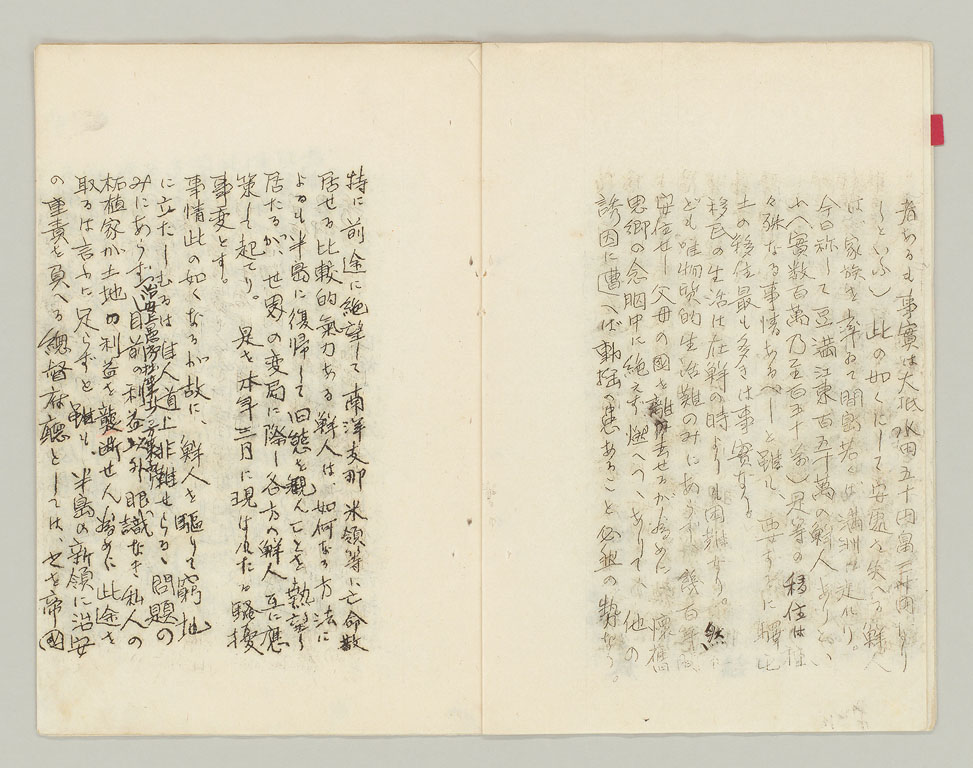 者あるも事實は大抵水田五十円畠三十円なり
しといふ）此の如くにして安處を失へる鮮人
は、家族を率ゐて間島若くは満洲に走れり。
今日称して豆満江東百五十萬の鮮人ありとい
ふ（實数百萬乃至百五十萬）是等の移住は種
々殊なる事情あるべしと雖も、要するに驛屯
土の移住最も多きは事實なる
移民の生活は在鮮の時よりも困難なり。然れ
ども唯物質的生活難のみにあらず、
安住せし父母の国を離れ去せるが為めに、懐舊
思郷の念胸中に絶えず燃へつゝありて、他の
誘因に遭へば動揺の患あること必然の勢なり。
特に前途に絶望して南洋支那米領等に亡命散
居せる比較的氣力ある鮮人は、如何なる方法に
よるも半島に復帰して旧態を観んことを熱望し
居たるが、世界の変局に際し各方の鮮人互に應
策して起てり。是を本年三月に現はれたる騒擾
事変とす。
事情此の如くなるが故に、鮮人を驅りて窮地
に立たしむるは、唯人道上非難せらるゝ問題の
みにあらず、目前の利益以外眼識なき私人の
拓植家が土地の利益を壟断せん為めに此途を
取るは言ふに足らずと雖も、半島の新領に治安
の重責を負へる總督府廳としては、之を帝國